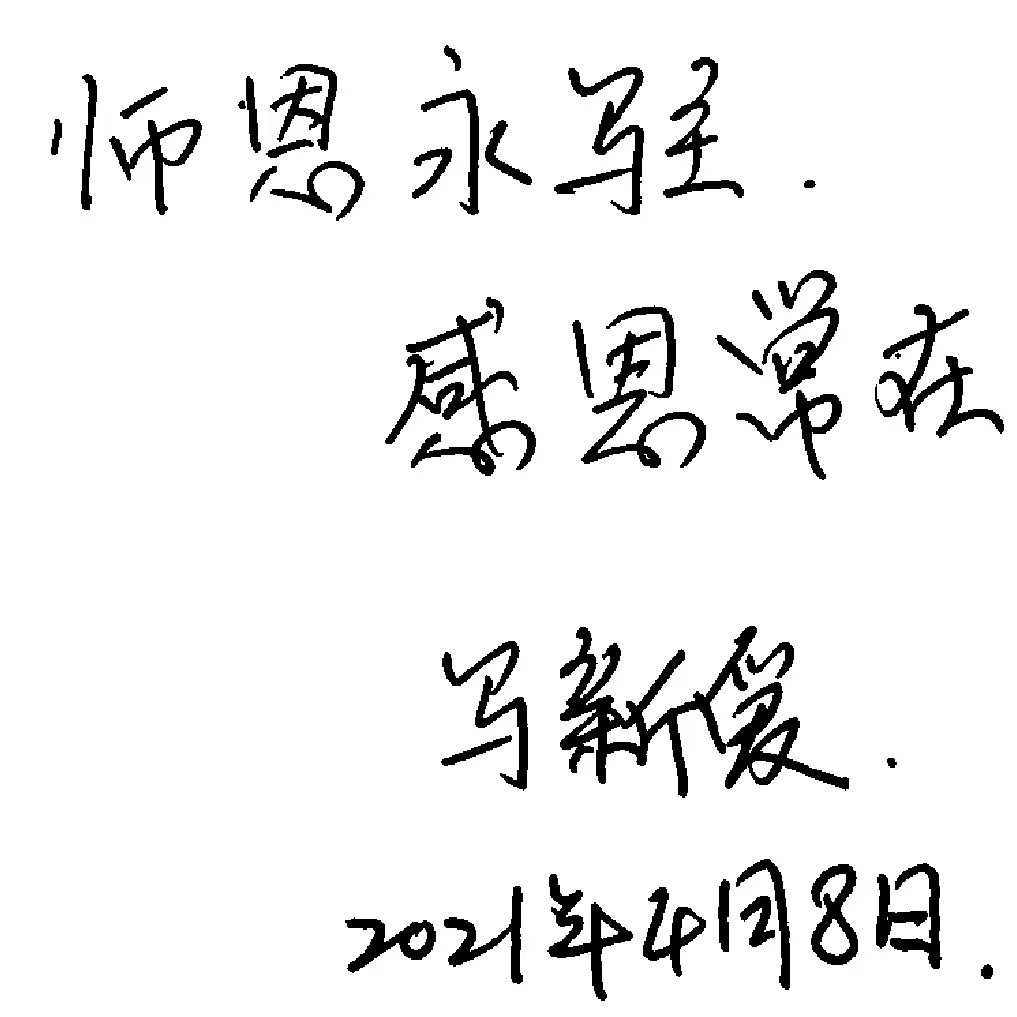 师恩永驻.
感恩常在
马新.
2021年4月8日.